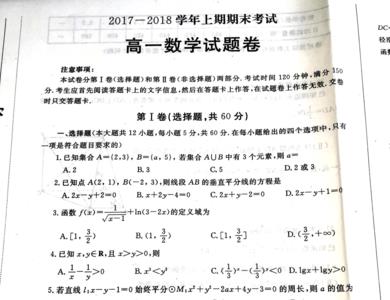 2017—2018 学年上期期末考试
高一数学试题卷
注意事项:
本试卷分第Ⅰ卷(选择题)和第Ⅱ卷(非选择题)两部分. 考试时间 120 分钟, 满分 150
分. 考生应首先阅读答题卡上的文字信息, 然后在答题卡上作答, 在试题卷上作答无效. 交卷
时只交答题卡.
第Ⅰ卷(选择题, 共 60 分)
一、选择题(本大题共 12 小题, 每小题 5 分, 共 60 分. 在每小题给出的四个选项中, 只有
一项是符合题目要求的)
1. 已知集合 A={2,3}, B={a,5}, 若集合 A∪B 中有 3 个元素, 则 a=
A. 2 B. 3 C. 5 D. 2 或 3
2. 已知点 A(2,1), B(-2,3), 则线段 AB 的垂直平分线的方程是
A. 2x-y+2=0 B. x+2y-4=0 C. x-2y+2=0 D. 2x-y+1=0
3. 函数 f(x)=1/√(x-1)+ln(3-2x)的定义域为
A. [1, 3/2) B. (1, 3/2) C. [1, 3/2] D. (3/2, +∞)
4. 已知 x,y∈R, 且 x>y>0, 则
A. 1/x-1/y>0 B. x³<y³ C. (1/3)ˣ-(1/3)ʸ<0 D. lgx+lgy>0
5. 若直线 l:x-y-1=0 始终平分⊙M:x²+y²-2ax+4y-3=0 的周长, 则 a 的值为
DC=